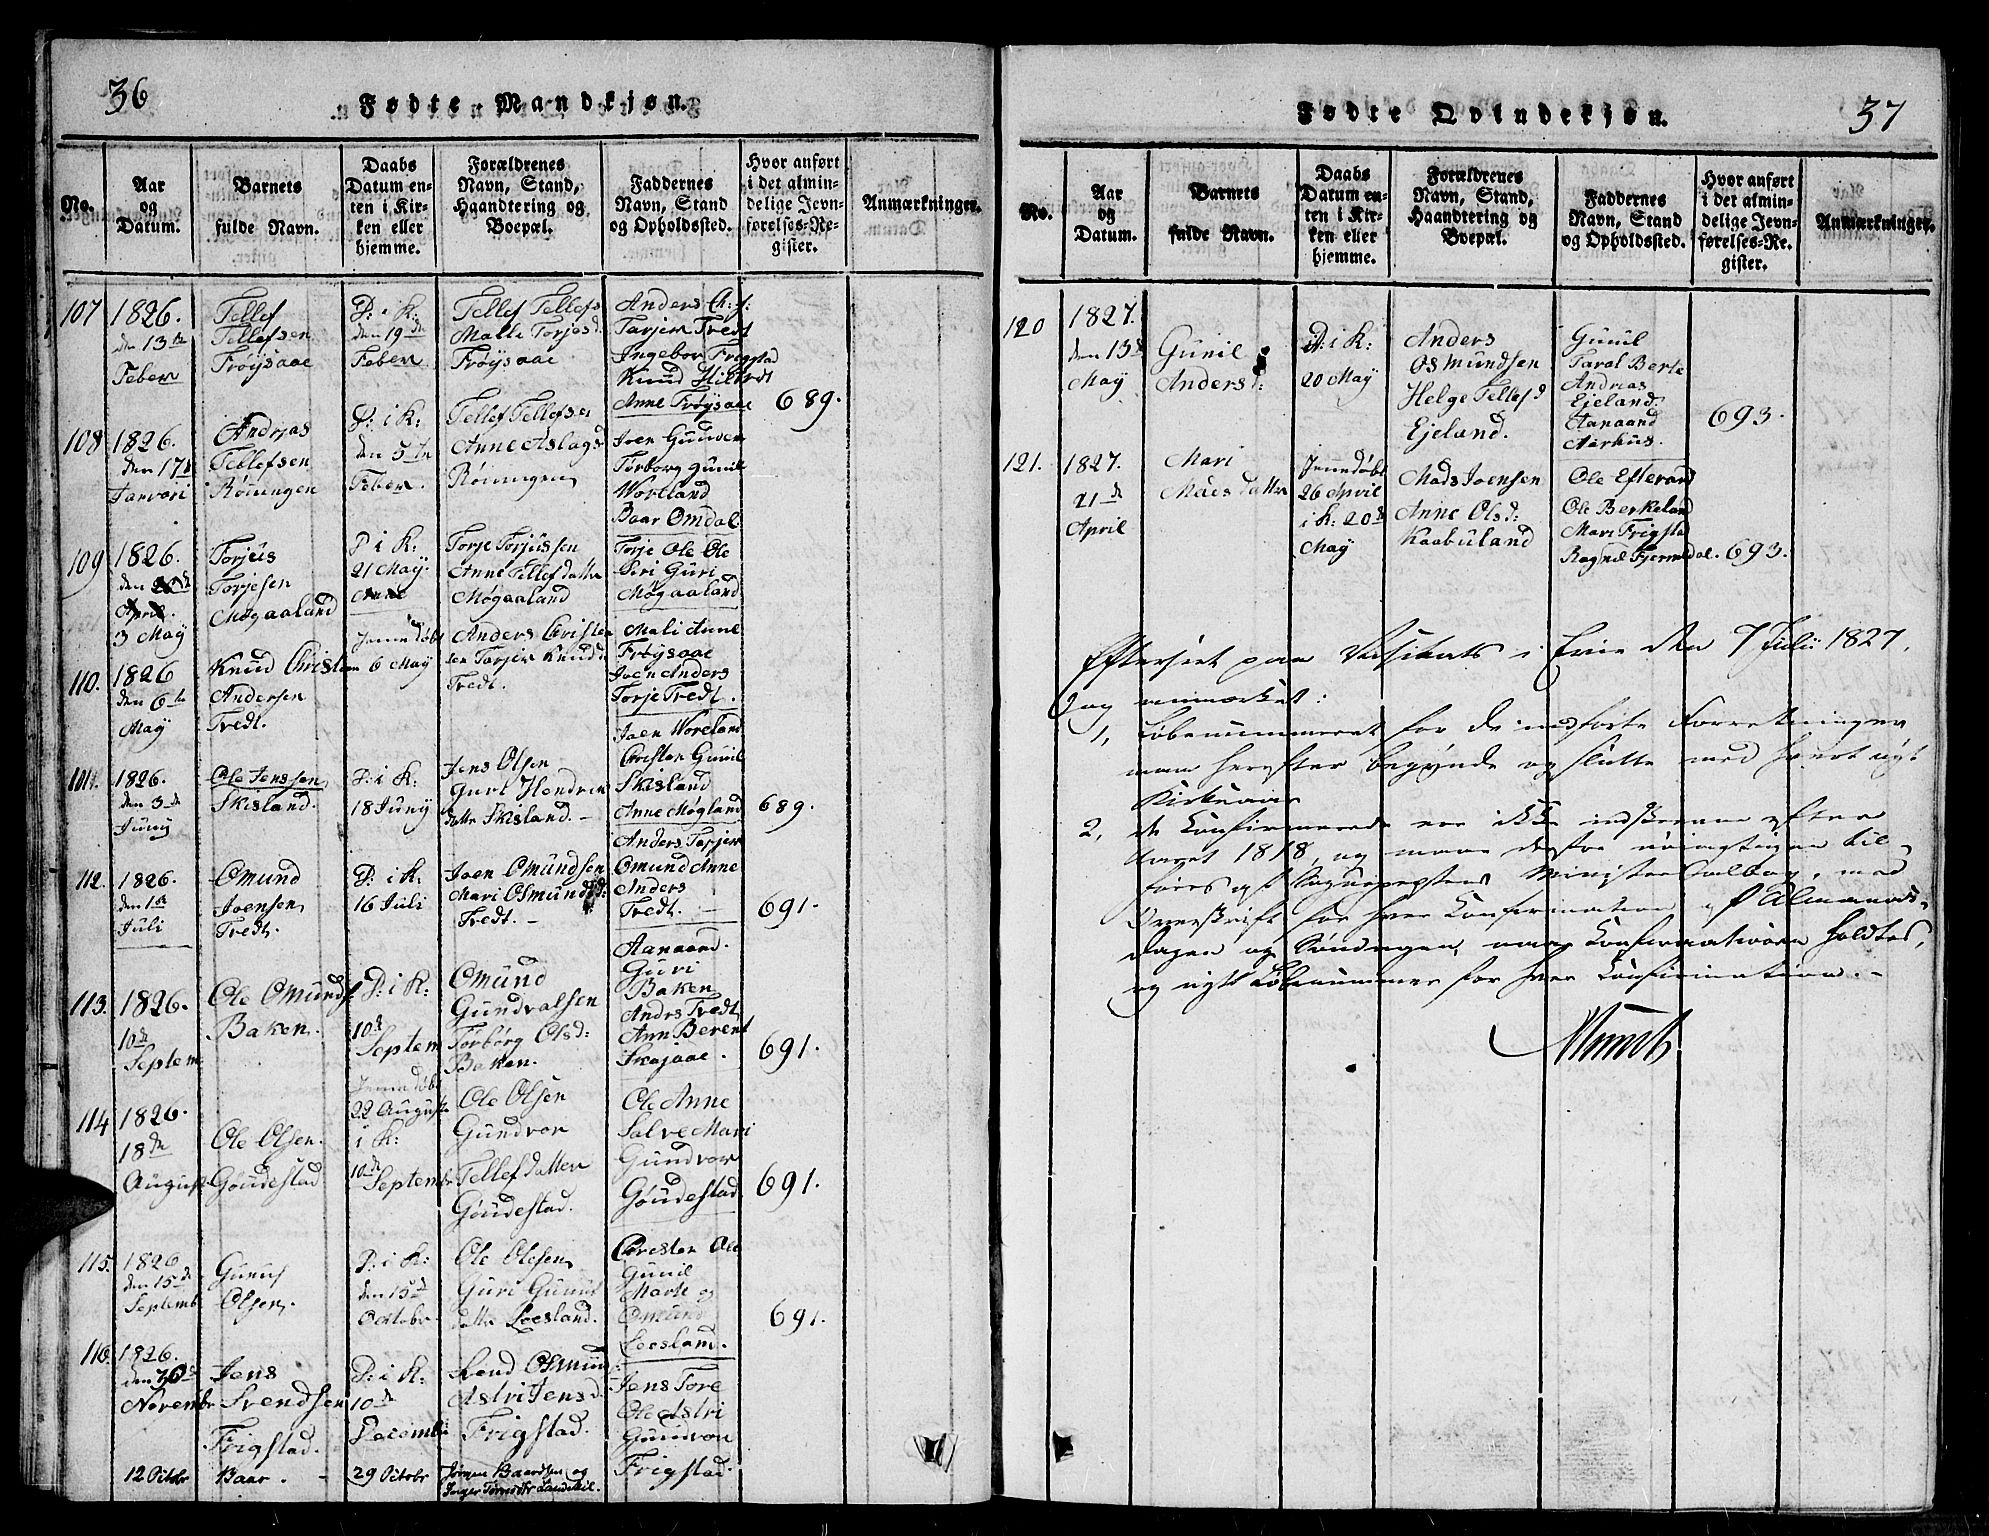 36
Fødte Mandkjøn.
No.
Aar
og
Datum.
Barnets
fulde Navn.
Daabs
Datum en-
ten i Kir-
ken eller
hjemme.
Forældrenes
Navn, Stand,
Haandtering og
Boepæl.
Faddernes
Navn, Stand
og Opholdssted.
Hvor anført
i det almin-
delige Jevn-
førelses-Re-
gister.
Anmærkninger.
107
1826.
den 13de
Feber
Tellef
Tellefsen
Frøysaae
D: i K:
den 19de
Feber
Tellef Tellefs
Malli Torjesd
Frøysaae
Anders Ch:s:
Tarjer Tredt
Ingebor Frigstad
Knud Hiltredt
Anne Frøysaae
689.
108
1826.
den 17de
Januari
Andrjas
Tellefsen
Røiningen
D: i K:
den 5te
Feber.
Tellef Tellefsen
Anne Aslagsd
Røiningen
Joen Gunder
Torborg Gunil
Woreland
Baar Omdal
109
1826.
April.
3 May
Torjus
Torjesen
Møgaaland
D i K:
21 May.
Torje Torjussen
Anne Tellefsdatter
Møgaaland
Torje Ole Ole
Siri Guri
Møgaaland
110.
1826
den 6te
May
Knud Christen
Andersen
Tredt.
Jemmedøbt
6 May
Anders Christen
sen Tarjer Knudsd
Tredt.
Mali Anne
Frøysaae
Joen Anders
Torje Tredt.
1826.
den 3de
Juny
Ole Jenssen
Skisland.
D: i K:
18 Juny
Jens Olsen
Guri Hendrix
datter Skisland.
Joen Woreland
Christen Gunil
Skisland
Anne Møgland
689.
112.
1826.
den 1ste
Juli
Omund
Joensen
Tredt.
D: i K:
16 Juli
Joen Omundsen
Mari Osmundsd:
Tredt. —
Anders Tarjer
Omund Anne
Anders
Tredt. —
691.
113.
1826.
10de
Septem
Ole Omunds
Baken.
D: i K:
10de
Septem
Omund
Gundvalsen
Torborg Olsd:
Baken.
Aanaand.
Guri
Baken
Andrs Tredt
Ann Berent
Skajaae.
691.
114
1826.
18de
August
Ole Olsen.
Goudestad
Jemmedøbt
22 August
i K:
10de
Septembr
Ole Olsen
Gundvor
Tellefdatter
Goudestad.
Ole Anne
Salve Mari
Gundvor
Goudestad.
691.
115.
1826
den 15de
Septemb
Gunuf
Olsen.
D: i K:
den 15de
Octobr
Ole Olesen
Guri Gunuf
datter Loesland.
Christen Ole
Gunil
Marte og
Omund
Loesland.
691.
116.
1826.
den 30te
Novembr
Jens
Svendsen
Frigstad.
D: i K:
10de
Decembr
Svend Osmund
Astri Jensd:
Frigstad.
Jens Tore
Ole Astri
Gundvor
Frigstad.
12 Octobr
Baar. —
29 Octobr
Jørgen Baardsen og
37
Fødte Qvindekjøn.
No.
Aar
og
Datum.
Barnets
fulde Navn.
Daabs
Datum en-
ten i Kir-
ken eller
hjemme.
Forældrenes
Navn, Stand,
Haandtering og
Boepæl.
Faddernes
Navn, Stand
og Opholdssted.
Hvor anført
i det almin-
delige Jevn-
førelses-Re-
gister.
Anmærkninger.
120
1827.
den 13de
May
Gunil
Andersd:
D: i K:
20 May
Anders
Osmundsen
Helge Tellefsd
Ejeland.
Gunil
Taral Berte
Andrias
Ejeland.
Aanaand
Aarhus.
693.
121.
1827.
21de
April
Mari
Madsdatter
Jemmedøbt
26 April
i K: 20de
May
Mads Joensen
Anne Olsd:
Kaabuland
Ole Efterand
Ole Berkeland
Mari Frigstad
Ragnil Fjermedal.
693.
Efterseet paa Visitats i Evie den 7 Julii 1827,
og anmærket:
1, Løbenummeret for de indførte Forretninger
maa herefter begynde og slutte med hvert nyt
Kirkeaar
2, de Confirmerede ere ikke indskrevne efter
Aaret 1818, og maae derfor nøiagtigen til-
føres af Sognepræstens Ministerialbog, med
Overskrift for hver Confirmation af Almanaks-
dagen og Søndagen, naar Confirmationen holdtes,
og nyt Løbenummer for hver Confirmation. —
Munch